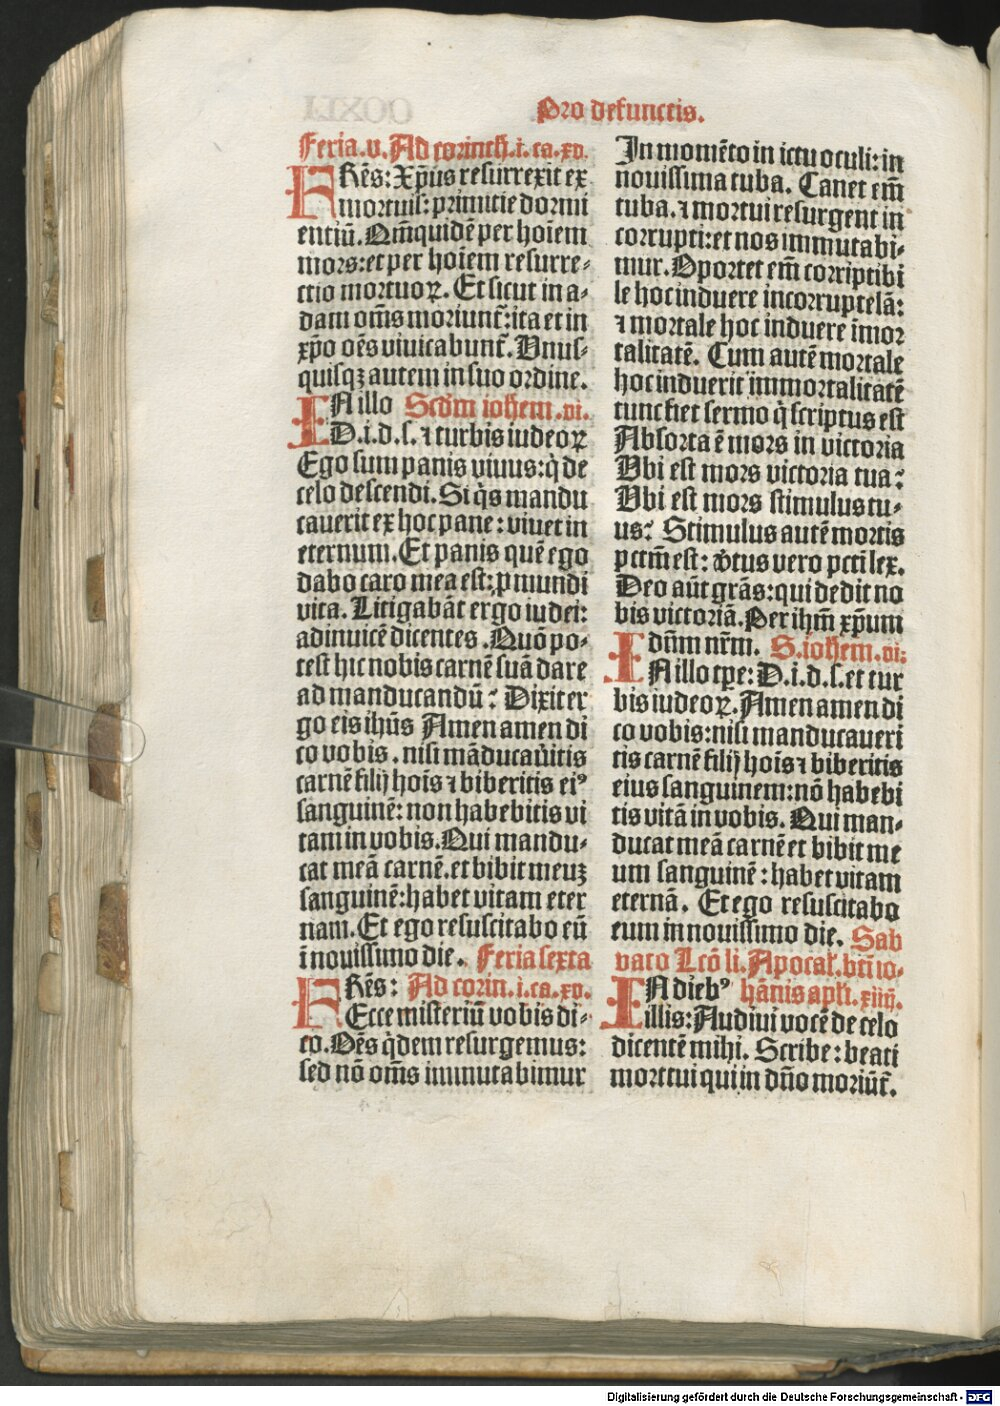 Pro defunctis.
Feria.v. Ad corinth.i.ca.xv.
FRēs: Xp̄us resurrexit ex
mortuis: primitie dormi
entiū. Qm̄ quidē per hoīem
mors: et per hoīem resurre⸗
ctio mortuoꝝ. Et sicut in a⸗
dam om̄s moriunt̄: ita et in
xp̄o oēs viuicabunt̄. Vnus⸗
quisqꝫ autem in suo ordine.
IN illo Scdm iohem.vi.
D.i.d.s. ⁊ turbis iudeoꝝ
Ego sum panis viuus: q̇ de
celo descendi. Si q̇s mandu
cauerit ex hoc pane: viuet in
eternum. Et panis quē ego
dabo caro mea est: ꝓ mundi
vita. Litigabāt ergo iudei:
adinuicē dicentes. Quō po⸗
test hic nobis carnē suā dare
ad manducandū? Dixit er
go eis ihūs Amen amen di
co vobis. nisi māducau̇itis
carnē filij hoīs ⁊ biberitis eiꝰ
sanguinē: non habebitis vi
tam in vobis. Qui mandu⸗
cat meā carnē. et bibit meuꝫ
sanguinē: habet vitam eter
nam. Et ego resuscitabo eū
ī nouissimo die. Feria sexta
FRēs: Ad corin.i.ca.xv.
Ecce misteriū vobis di⸗
co. Oēs q̇dem resurgemus:
sed nō om̄s immutabimur
In momēto in ictu oculi: in
nouissima tuba. Canet em̄
tuba. ⁊ mortui resurgent in
corrupti: et nos immutabi⸗
mur. Oportet em̄ corriptibi
le hoc induere incorruptelā:
⁊ mortale hoc induere īmor
talitatē. Cum autē mortale
hoc induerit immortalitatē
tunc fiet sermo q̇ scriptus est
Absorta ē mors in victoria
Vbi est mors victoria tua?
Vbi est mors stimulus tu⸗
us? Stimulus autē mortis
pctm̄ est: v̓tus vero pcti lex.
Deo aūt grās: qui dedit no
bis victoriā. Per ihm̄ xp̄um
dn̄m nr̄m. S. iohem.vi:
IN illo tꝑe: D.i.d.s. et tur
bis iudeoꝝ. Amen amen di
co vobis: nisi manducaueri
tis carnē filij hoīs ⁊ biberitis
eius sanguinem: nō habebi
tis vitā in vobis. Qui man⸗
ducat meā carnē et bibit me
um sanguinē: habet vitam
eternā. Et ego resuscitabo
eum in nouissimo die. Sab
vato Lcō li. Apocal̄. bti io⸗
IN diebꝰ hānis apl̄i. xiiij.
illis: Audiui vocē de celo
dicentē mihi. Scribe: beati
morttui qui in dn̄o moriūt̄.
Digitalisierung gefördert durch die Deutsche Forschungsgemeinschaft - DFG